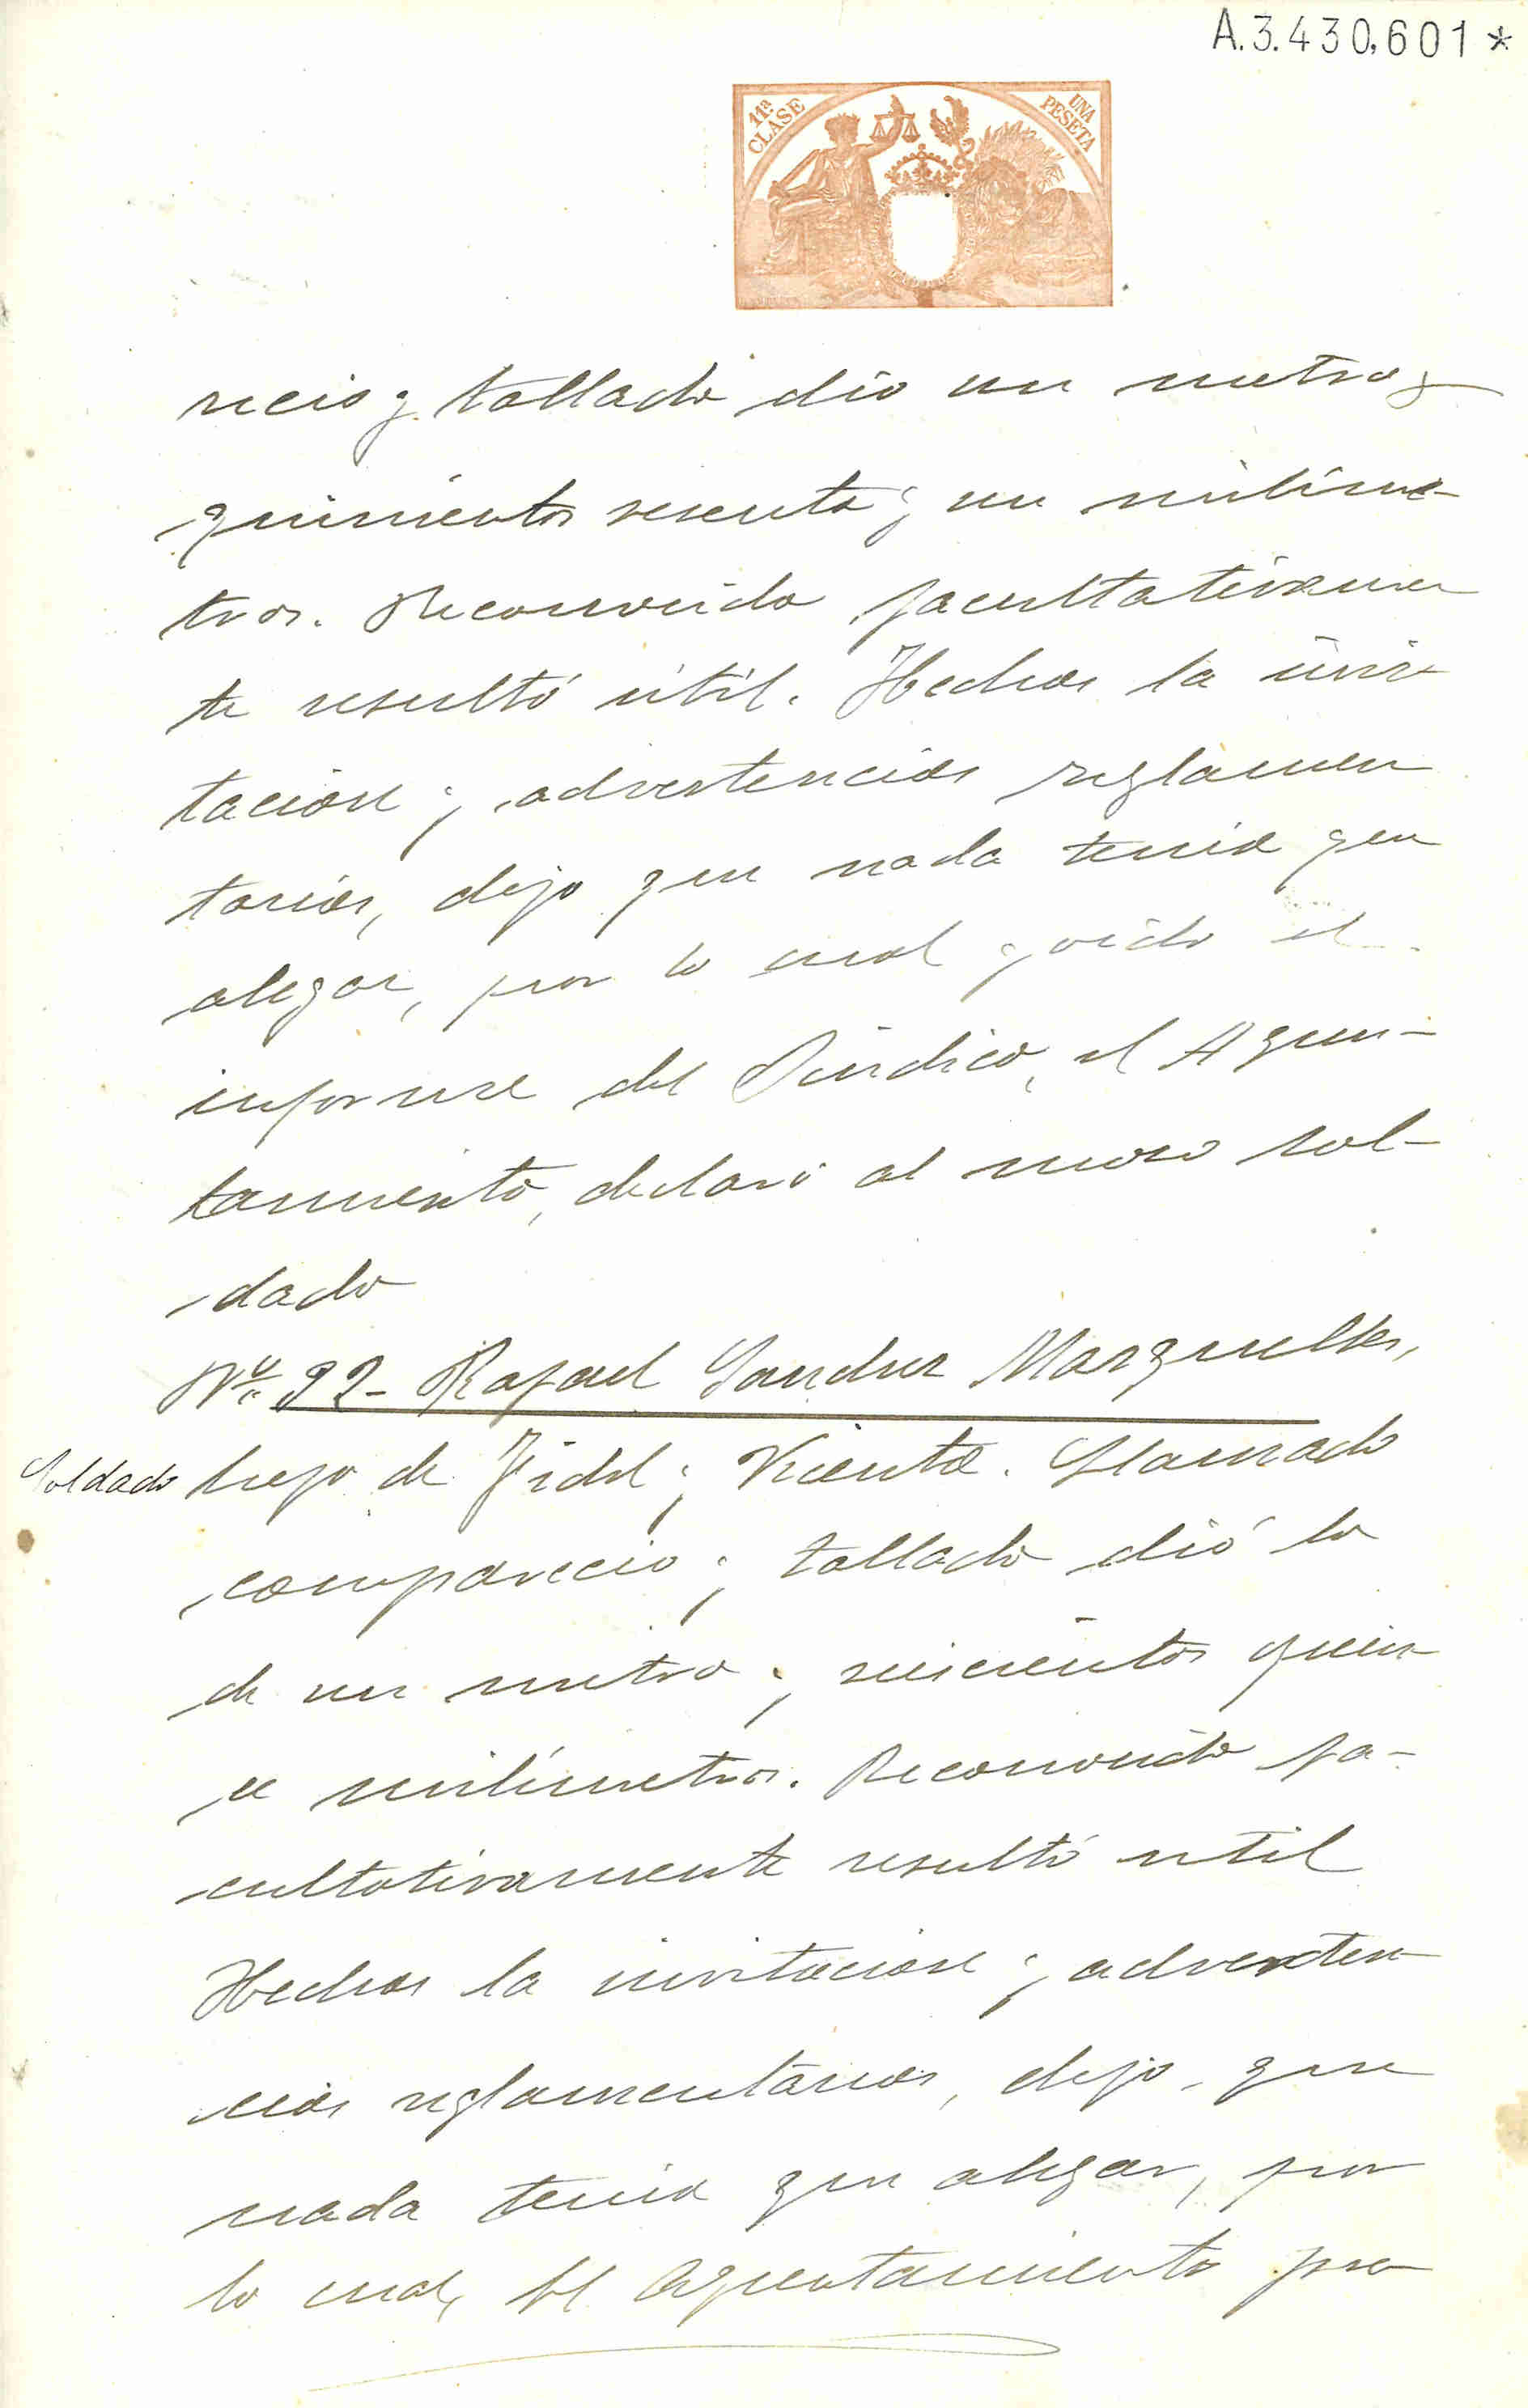 A.3.430.601*
11ª CLASE
UNA PESETA
recio y tallado dio un metro y
quinientos sesenta y un milime-
tros. Reconocido facultativamen
te resultó útil. Hechas la invi
tacion y advertencias reglamen
tarias, dijo que nada tenia que
alegar, por lo cual y oido el
informe del Sindico, el Ayun-
tamiento, declaró al mozo sol-
dado
Nº 92- Rafael Sanchez Marquelles,
Soldado
hijo de Fidel y Vicenta. Llamado
comparecio y tallado dió la
de un metro y seiscientos quin
ce milímetros. Reconocido fa-
cultativamente resultó util
Hechas la invitacion y adverten
cias reglamentarias, dijo que
nada tenia que alegar, por
lo cual, el Ayuntamiento pre